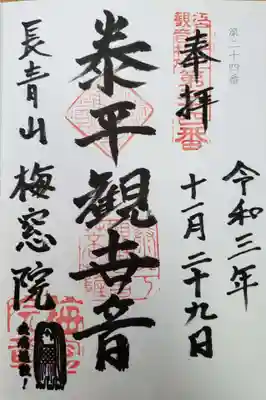 第二十四番
奉拝
令和三年
十一月二十九日
泰平観世音
長青山 梅窓院